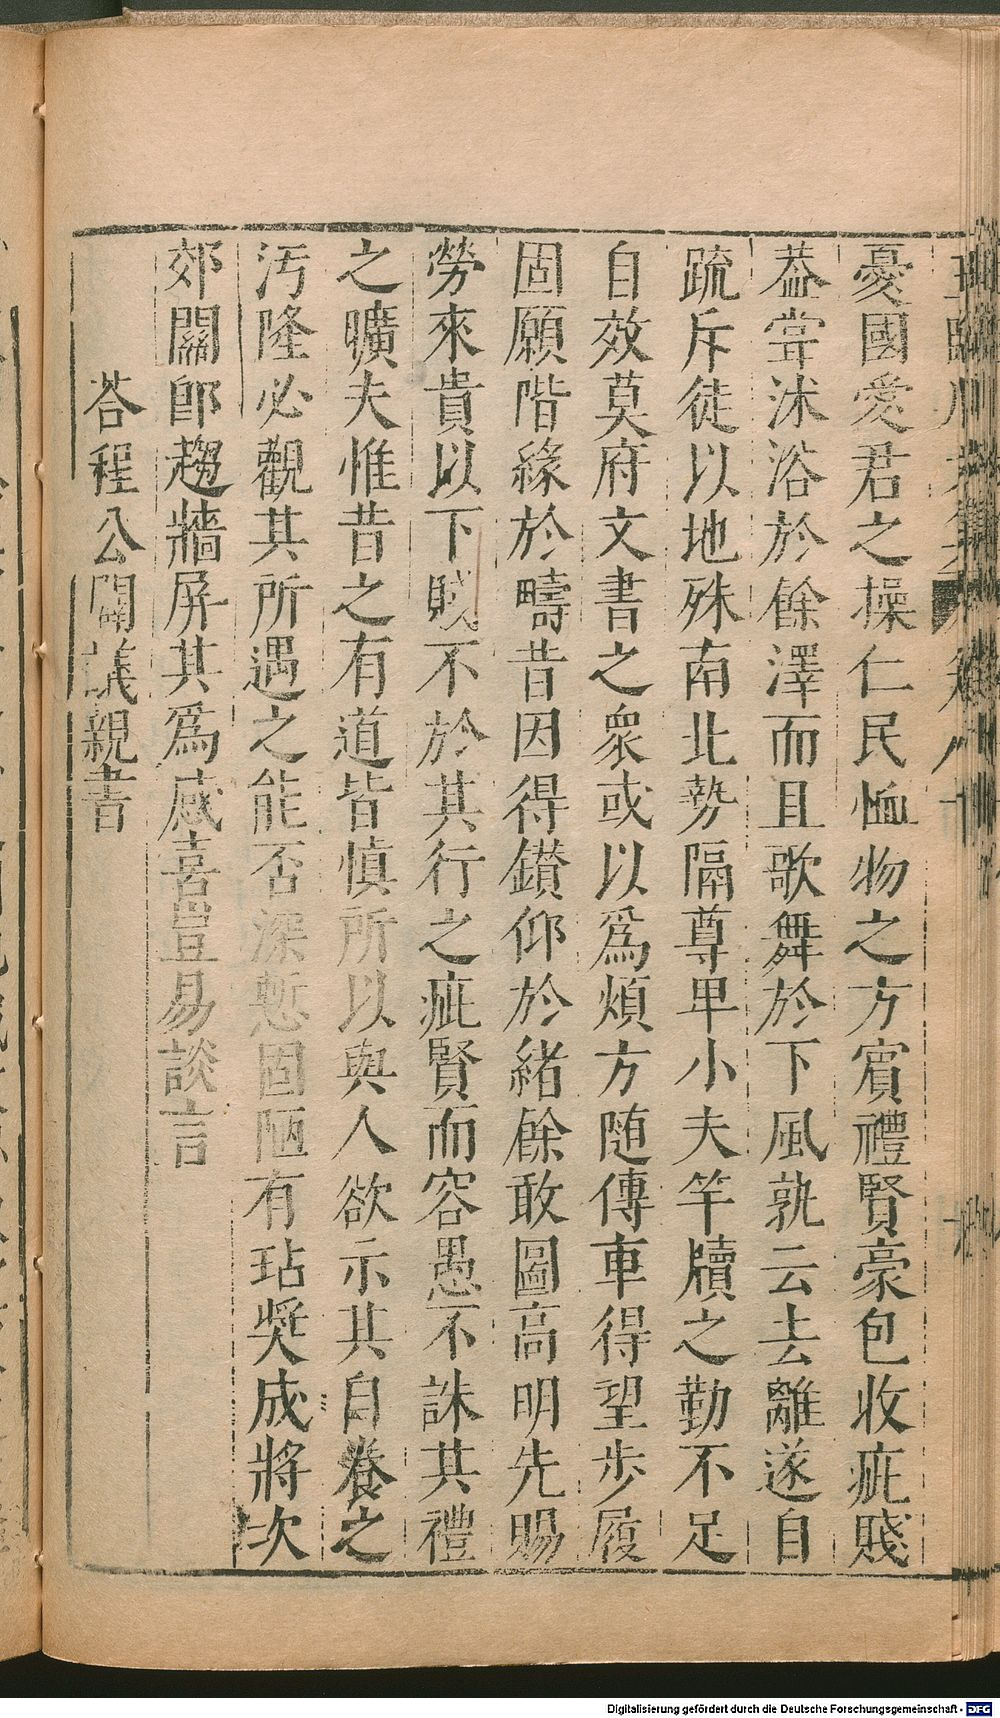 憂國愛君之操仁民恤物之方賔禮賢豪包收疵賤
葢甞沭浴於餘澤而且歌舞於下風孰云去離遂自
疏斥徒以地殊南北勢隔尊卑小夫竿牘之勤不足
自效莫府文書之衆或以爲煩方随傳車得望步履
固願階緣於疇昔因得鑚仰於緒餘敢圖高明先賜
勞來貴以下賤不於其行之疵賢而容愚不誅其禮
之曠夫惟昔之有道皆慎所以與人欲示其自養之
汚隆必觀其所遇之能否深慙固陋有玷奬成將次
郊關卽趨牆屏其爲感喜豈易談言
荅程公闢議親書
Digitalisierung gefördert durch die Deutsche Forschungsgemeinschaft - DFG